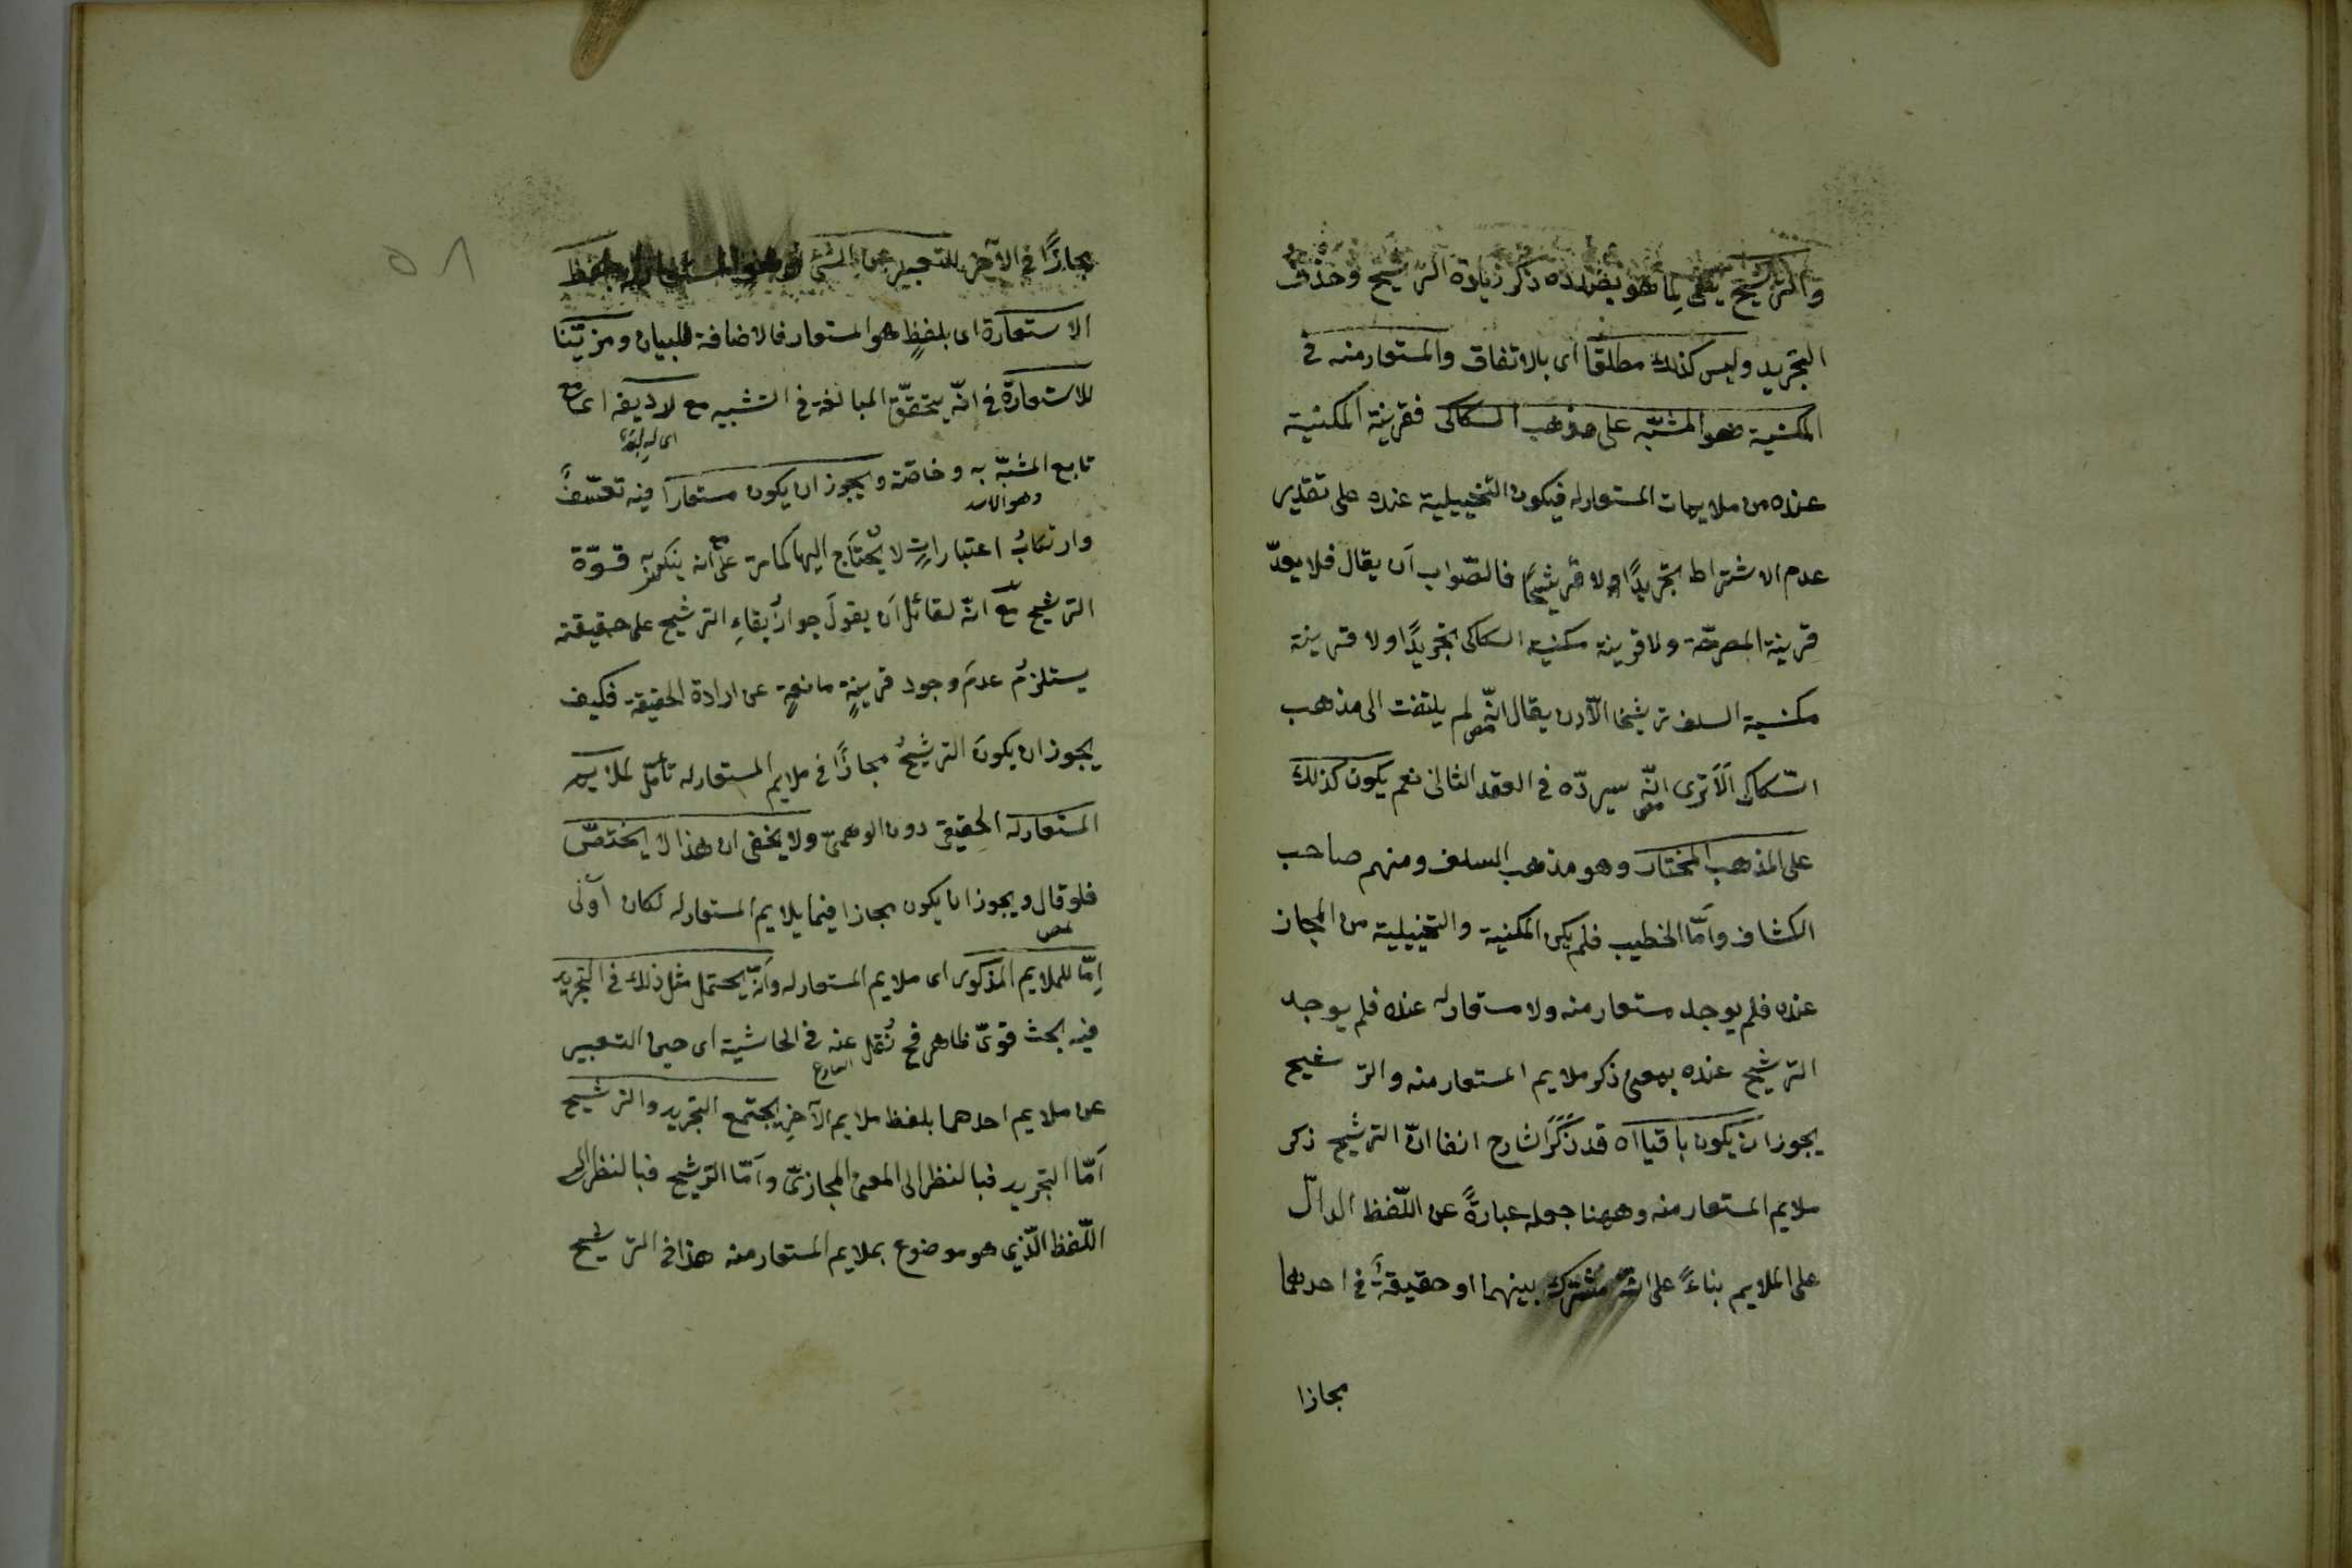 والترشيح يعنى لما هو بصدده ذكر زيادة الترشيح وحذف
التجريد وليس كذلك مطلقا اى بالاتفاق والمستعار منه في
المكنية هو المشبّه على مذهب السكاكى فقرينة المكنية
عنده من ملايمات المستعار له فيكون التخييلية عنده على تقدير
عدم الاشتراط تجريدًا ولا ترشيحًا فالصّواب اَن يقال فلا يعدّ
قرينة المصرحّة ولا قرينة مكنية السكاكى تجريدًا ولا قرينة
مكنية السلف ترشيحا الّا ان يقال انّه لم يلتفت الى مذهب
السّكاكى اَلَا ترى انّه سيردّه في العقد الثانى نعم يكون كذلك
على المذهب المختار وهو مذهب السلف ومنهم صاحب
الكشاف واَمّا الخطيب فلم يكن المكنية والتخييلية من المجاز
عنده فلم يوجد مستعار منه ولا مستعار له عنده فلم يوجد
الترشيح عنده بمعنى ذكر ملايم المستعار منه والترشيح
يجوز اَن يكون باقيا اه قد ذَكَرَ الشارح انفا انّ الترشيح ذكر
ملايم المستعار منه وههنا جعله عبارةً عن اللّفظ الدالّ
على الملايم بناءً على انّه مشترك بينهما او حقيقةٌ في احدهما
مجازا
٥٨
مجازًا في الآخر للتعبير عن الشئ بلفظ
الاستعارة اى بلفظٍ هو المستعار فالاضافة للبيان ومزيّنا
للاستعارة في انّه يتحقّق المبالغة في التشبيه مع لاديفه اى مع
تابع المشبّه به وخاصّة ويجوز ان يكون مستعارًا فيه تعسّفٌ
وهو الاسد
وارتكابُ اعتباراتٍ لا يُحتاَج اليها كما مرّ على انه ينكسر به قوّة
الترشيح مع انّه لقائل اَن يقولَ جوازُ بقاءِ الترشيح على حقيقته
يستلزمُ عدمَ وجود قرينةٍ مانعةٍ عن ارادة الحقيقة فكيف
يجوز ان يكونَ الترشيحُ مجازًا في ملايم المستعار له تأمّل لملايم
المستعار له الحقيقى دون الوهمىّ ولا يخفى ان هذا لا يختصّ
فلو قال ويجوز ان يكون مجازا فيما يلايم المستعار له لكان اَولى
اِمّا للملايم المذكور اى ملايم المستعار له وانّه يحتمل مثل ذلك في التجريد
فيه بحث قوىّ ظاهر فح نُقل عنه في الحاشية اى حين التعبير
الشارح
عن ملايم احدهما بلفظ ملايم الآخرِ يجتمع التجريد والترشيح
اَمّا التجريد فبالنظر الى المعنى المجازىّ واَمّا الترشيح فبالنظر الى
اللّفظ الّذي هو موضوع بملايم المستعار منه هذا في الترشيح